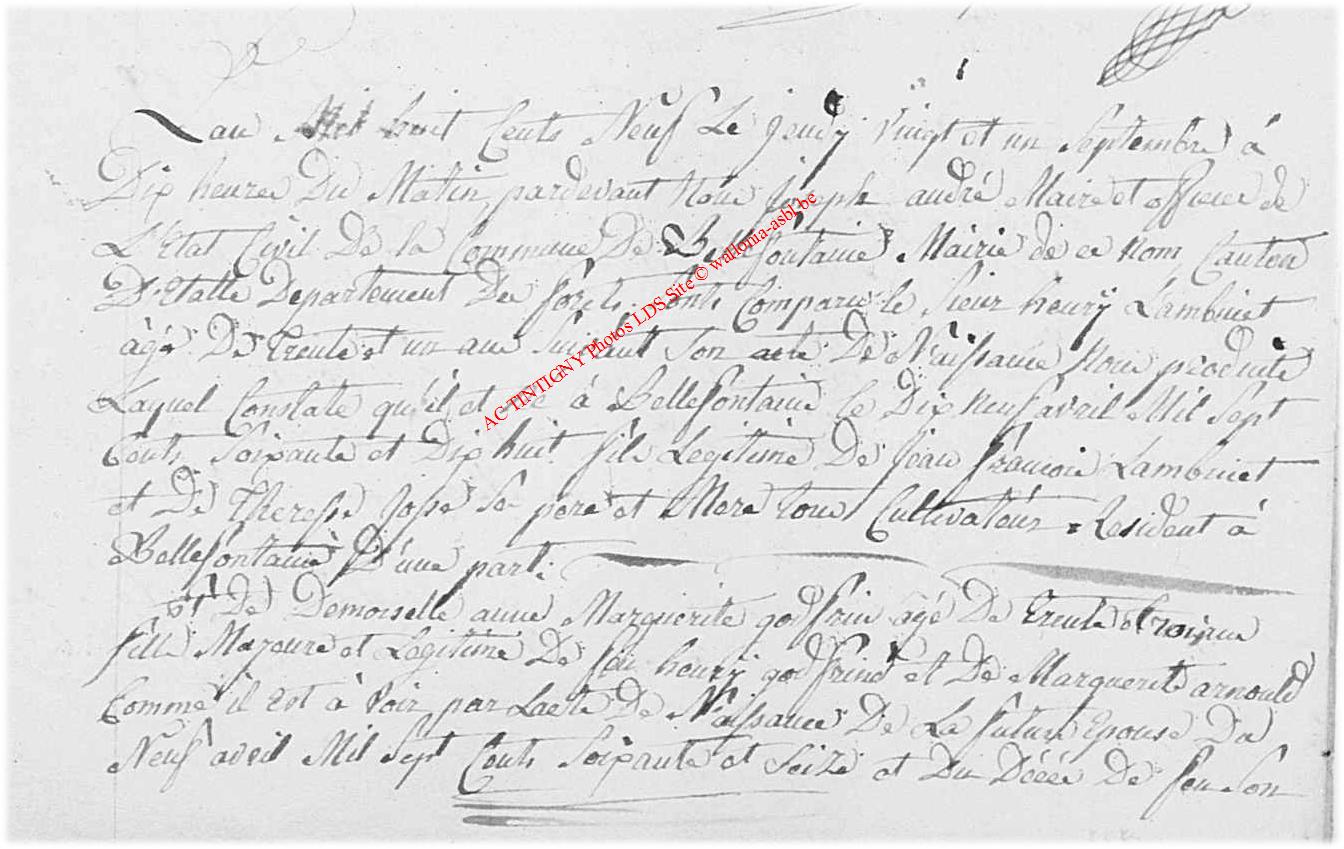 Lan Mil huit Cents Neuf Le jeudy vingt et un Septembre à
Dix heures Du Matin, pardevant Nous joseph andré Maire et officier de
L'Etat Civil De la Commune De Bellefontaine Mairie de ce Nom, Canton
D'Etalle Departement Des forets. sont Comparu le sieur henry Lambinet
âgé De trente et un ans suivant son acte De Naissance Nous produite
Laquel Constate qu'il et né à Bellefontaine Le Dix neuf avril Mil sept
Cents soixante et Dix huit fils Legitime De jean francois Lambinet
et De Therese sa pere et Mere tous Cultivateur Resident à
Bellefontaine D'une part.
et De Demoiselle anne Marguerite godfrin âgé De trente trois
fille Majeure et Legitime De feu henry godfrind et De Marguerite arnould
Comme il est à voir par Lacte De Naissance De La future Epouse Da
Neuf avril Mil sept Cents soixante et seize et Du Décée De feu son
AC TINTIGNY Photos LDS Site © wallonia-asbl-be